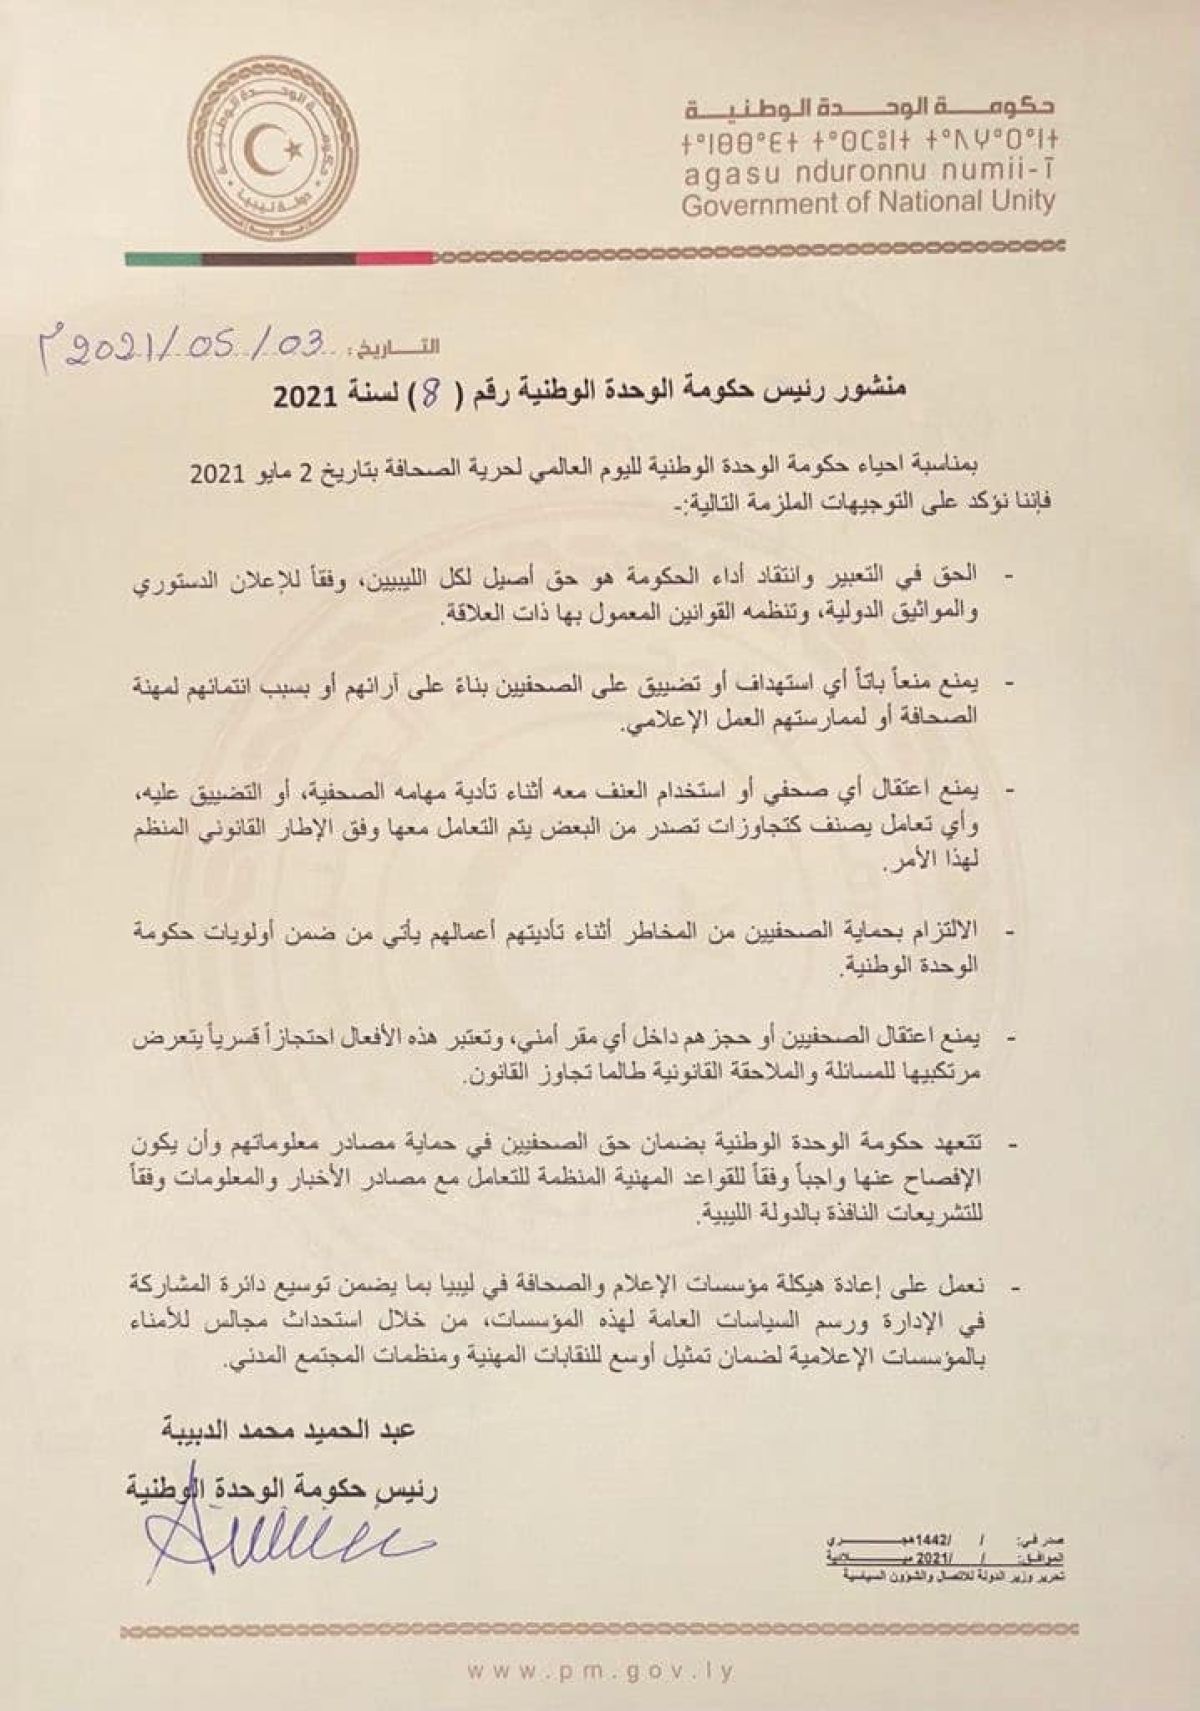 حكومة الوحدة الوطنية
agasu nduronnu numii-ī
Government of National Unity
حكومة الوحدة الوطنية
دولة ليبيا
التاريخ: 2021/05/03 م
منشور رئيس حكومة الوحدة الوطنية رقم (8) لسنة 2021
بمناسبة احياء حكومة الوحدة الوطنية لليوم العالمي لحرية الصحافة بتاريخ 2 مايو 2021
فإننا نؤكد على التوجيهات الملزمة التالية:-
- الحق في التعبير وانتقاد أداء الحكومة هو حق أصيل لكل الليبيين، وفقاً للإعلان الدستوري
والمواثيق الدولية، وتنظمه القوانين المعمول بها ذات العلاقة.
- يمنع منعاً باتاً أي استهداف أو تضييق على الصحفيين بناءً على آرائهم أو بسبب انتمائهم لمهنة
الصحافة أو لممارستهم العمل الإعلامي.
- يمنع اعتقال أي صحفي أو استخدام العنف معه أثناء تأدية مهامه الصحفية، أو التضييق عليه،
وأي تعامل يصنف كتجاوزات تصدر من البعض يتم التعامل معها وفق الإطار القانوني المنظم
لهذا الأمر.
- الالتزام بحماية الصحفيين من المخاطر أثناء تأديتهم أعمالهم يأتي من ضمن أولويات حكومة
الوحدة الوطنية.
- يمنع اعتقال الصحفيين أو حجزهم داخل أي مقر أمني، وتعتبر هذه الأفعال احتجازاً قسرياً يتعرض
مرتكبيها للمسائلة والملاحقة القانونية طالما تجاوز القانون.
- تتعهد حكومة الوحدة الوطنية بضمان حق الصحفيين في حماية مصادر معلوماتهم وأن يكون
الإفصاح عنها واجباً وفقاً للقواعد المهنية المنظمة للتعامل مع مصادر الأخبار والمعلومات وفقاً
للتشريعات النافذة بالدولة الليبية.
- نعمل على إعادة هيكلة مؤسسات الإعلام والصحافة في ليبيا بما يضمن توسيع دائرة المشاركة
في الإدارة ورسم السياسات العامة لهذه المؤسسات، من خلال استحداث مجالس للأمناء
بالمؤسسات الإعلامية لضمان تمثيل أوسع للنقابات المهنية ومنظمات المجتمع المدني.
عبد الحميد محمد الدبيبة
رئيس حكومة الوحدة الوطنية
صدر في: / /1442 هجري
الموافق: / /2021 ميلادية
تحرير وزير الدولة للاتصال والشؤون السياسية
www.pm.gov.ly